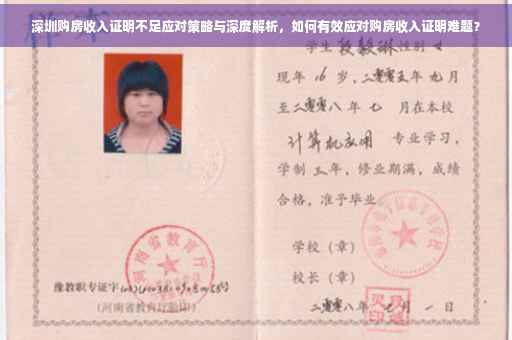 深圳购房收入证明不足应对策略与深度解析，如何有效应对购房收入证明难题？
学生 性别 女
现年 16 岁，二零零五年 九月
至二零零八年 七 月在本校
计算机应用 专业学习，
学制 三年，修业期满，成绩
合格，准予毕业
学校（章）
校长（章）
二零零八年 月 一 日
河南省教育厅
豫教职专证字
（河南省教育厅验印）